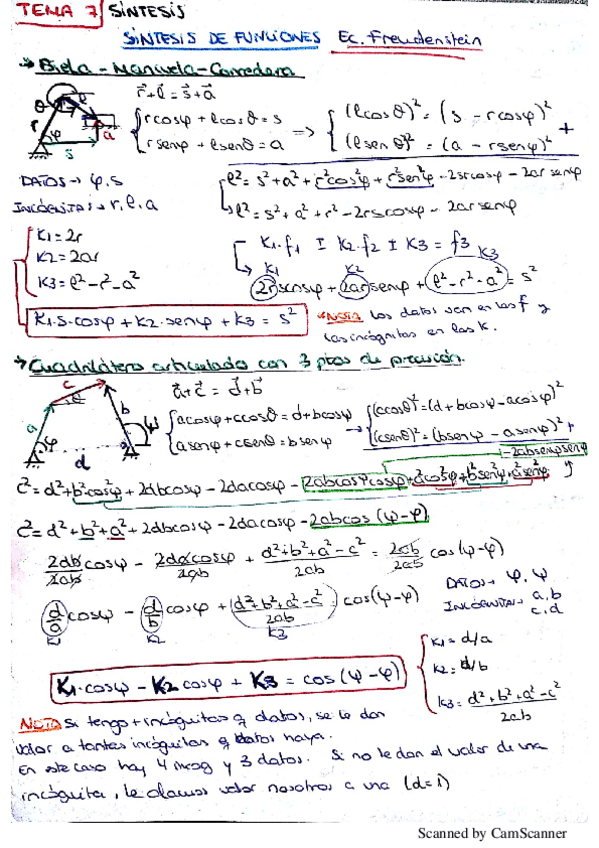 TEMA 7 SÍNTESIS
SÍNTESIS DE FUNCIONES Ec. Freudenstein
→ Biela-Manivela-Corredera
r⃗+l⃗ = s⃗+a⃗
{ rcosφ + lcosθ = s ⇒ { (lcosθ)² = (s - rcosφ)²
{ rsenφ + lsenθ = a { (lsenθ)² = (a - rsenφ)² +
DATOS → φ, s
INCÓGNITAS → r, l, a
l² = s²+a²+r²cos²φ+r²sen²φ - 2srcosφ - 2arsenφ
l² = s²+a²+r² - 2rscosφ - 2arsenφ
{ K1 = 2r
{ K2 = 2ar
{ K3 = l²-r²-a²
K1·f1 ± K2·f2 ± K3 = f3
K1 K2 K3
2rscosφ + 2arsenφ + l²-r²-a² = s²
K1·s·cosφ + K2·senφ + K3 = s²
NOTA los datos van en las f y
las incógnitas en las K.
→ Cuadrilátero articulado con 3 ptos de precisión.
a⃗+c⃗ = d⃗+b⃗
{ acosφ+ccosθ = d+bcosψ → { (ccosθ)² = (d+bcosψ-acosφ)²
{ asenφ+csenθ = bsenψ { (csenθ)² = (bsenψ - asenφ)² +
-2absenψsenφ
c² = d²+b²cos²ψ + 2dbcosψ - 2dacosφ - 2abcosψcosφ + a²cos²φ + b²sen²ψ + a²sen²φ
c² = d²+b²+a²+2dbcosψ - 2dacosφ - 2abcos(ψ-φ)
2db/2ab cosψ - 2da/2ab cosφ + d²+b²+a²-c²/2ab = 2ab/2ab cos(ψ-φ)
DATOS → φ, ψ
INCÓGNITAS → a, b
c, d
d/a cosψ - d/b cosφ + d²+b²+a²-c²/2ab = cos(ψ-φ)
K1 K2 K3
K1·cosψ - K2 cosφ + K3 = cos(ψ-φ)
{ K1 = d/a
{ K2 = d/b
{ K3 = d²+b²+a²-c²/2ab
NOTA Si tengo + incógnitas q datos, se le dan
valor a tantas incógnitas q datos haya.
En este caso hay 4 incog y 3 datos. Si no le dan el valor de una
incógnita, le damos valor nosotros a una (d=1)
Scanned by CamScanner